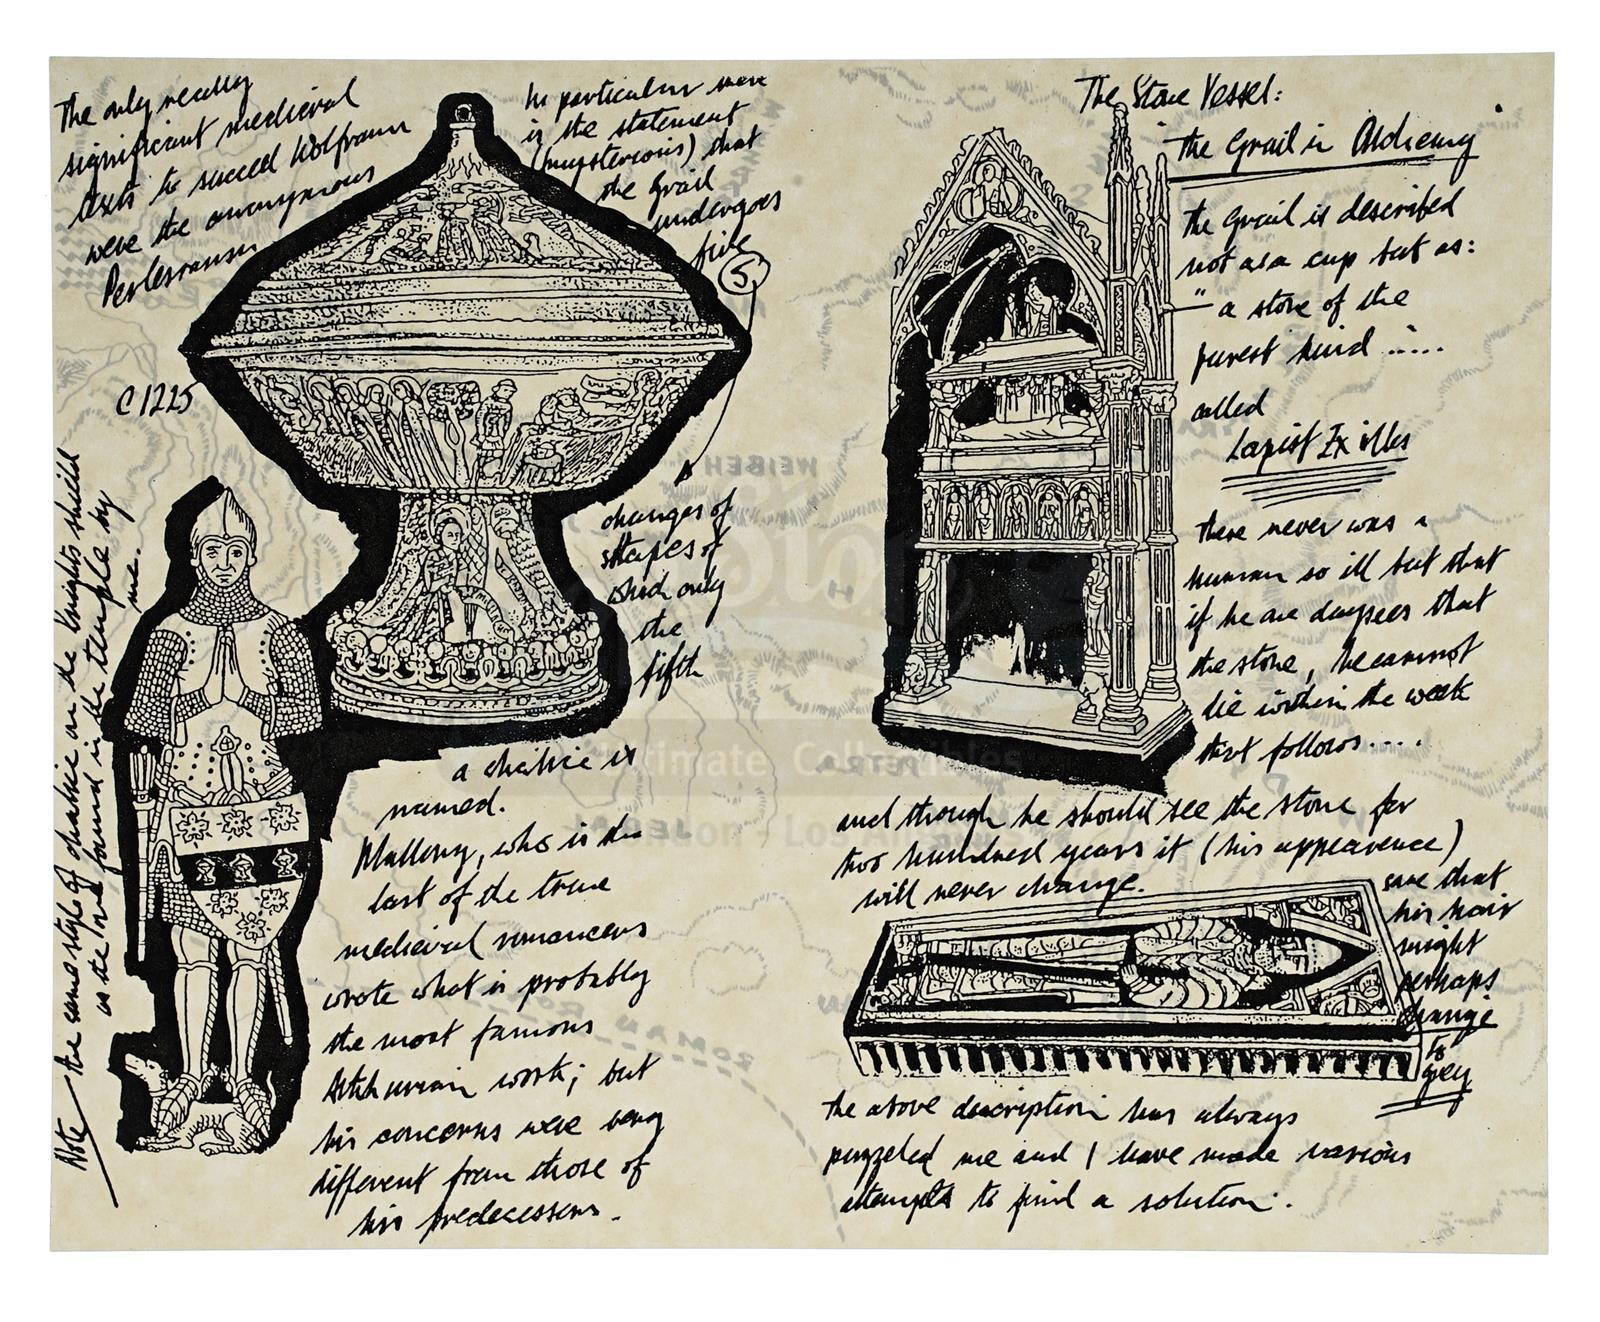 The only really
significant medieval
texts to succeed Wolfram
were the anonymous
Perlesvaus
In particular were
in the statement
(mysterious) that
the Grail
undergoes
five
5
changes of
shapes of
which only
the
fifth
a chalice is
named.
C1225
Mallory, who is the
last of the true
medieval romancers
wrote what is probably
the most famous
Arthurian work; but
his concerns were very
different from those of
his predecessors.
Note the same style of chalice on the Knights shield
as the one found in the temple by
me.
The Stone Vessel:
the Grail in Alchemy
the Grail is described
not as a cup but as:
"a stone of the
purest kind .....
called
Lapist Ex illis
there never was a
human so ill but that
if he one day sees that
the stone, he cannot
die within the week
that follows....
and though he should see the stone for
two hundred years it (his appearence)
will never change.
save that
his hair
might
perhaps
change
to
grey
the above description has always
puzzeled me and I have made various
attempts to find a solution.
WEIBEH
ROMAN ROAD
Ultimate Collectibles
London - Los